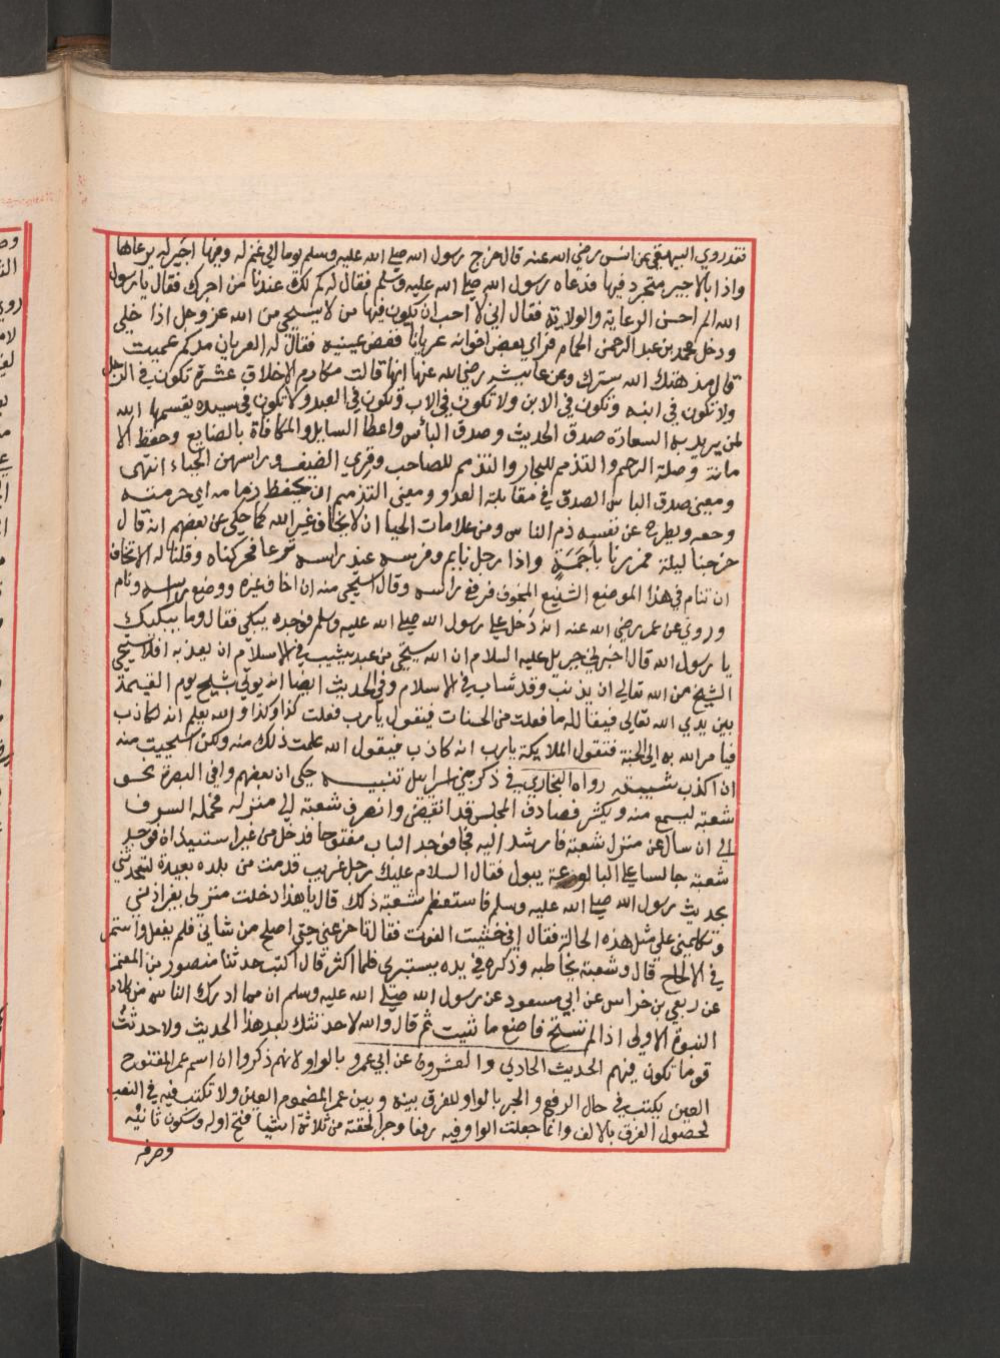 فقد روي البيهقي عن انس رضي الله عنه قال خرج رسول الله صلى الله عليه وسلم يوما الى غنم له وفيها اجير له يرعاها
واذا بالاجير متجرد فيها فدعاه رسول الله صلى الله عليه وسلم فقال له كم لك عندنا من اجرك فقال يا رسول
الله الم احسن الرعاية والولاية فقال اني لا احب ان يكون فيها من لا يستحي من الله عز وجل اذا خلى
ودخل محمد بن عبد الرحمن الحمام فراي بعض اخوانه عريانا فغمض عينيه فقال له العريان مذ كم عميت
قال مذ هتك الله سترك وعن عايشه رضي الله عنها انها قالت مكارم الاخلاق عشرة تكون في الرجل
ولا تكون في ابنه وتكون في الابن ولا تكون في الاب وتكون في العبد ولا تكون في سيده يقسمها الله
لمن يريد به السعادة صدق الحديث وصدق البأس واعطا السايل والمكافاة بالصنايع وحفظ الا
مانة وصلة الرحم والتذمم للجار والتذمم للصاحب وقري الضيف وراسهن الحياء انتهى
ومعنى صدق الباس الصدق في مقابلة العدو ومعنى التذمم ان يحفظ ذمامه اي حرمته
وحقه ويطرح عن نفسه ذم الناس ومن علامات الحيا ان لا يخاف غير الله كما حكي عن بعضهم انه قال
خرجنا ليلة فمررنا باجمة واذا رجل نايم وفرسه عند راسه ترعا فحركناه وقلنا له الا تخاف
ان تنام في هذا الموضع الشنيع المخوف فرفع راسه وقال استحي منه ان اخاف غيره ووضع راسه ونام
وروي عن عمر رضي الله عنه انه دخل على رسول الله صلى الله عليه وسلم فوجده يبكي فقال وما يبكيك
يا رسول الله قال اخبرني جبريل عليه السلام ان الله يستحي من عبد يشيب في الاسلام ان يعذبه افلا يستحي
الشيخ من الله تعالى ان يذنب وقد شاب في الاسلام وفي الحديث ايضا انه يوتى بشيخ يوم القيمة
بين يدي الله تعالى فيقال له ما فعلت من الحسنات فيقول يا رب فعلت كذا وكذا والله يعلم انه كاذب
فيامر الله به الى الجنة فتقول الملايكة يارب انه كاذب فيقول الله علمت ذلك منه ولكن استحييت منه
ان اكذب شيبته رواه البخاري في ذكر بني اسرائيل تنبيه حكي ان بعضهم وافي البصرة نحو
شعبة ليسمع منه ويكثر فصادف المجلس قد انقضى وانصرف شعبة الى منزله فحمله السرف
الى ان سال عن منزل شعبة فارشد اليه فجا فوجد الباب مفتوحا فدخل من غير استيذان فوجد
شعبة جالسا على البالوعة يبول فقال السلام عليك رجل غريب قدمت من بلده بعيدة لتحدثني
بحديث رسول الله صلى الله عليه وسلم فاستعظم شعبة ذلك قال يا هذا دخلت منزلي بغير اذني
وتكلمني على مثل هذه الحالة فقال اني خشيت الفوت فقال تاخر عني حتى اصلح من شاني فلم يفعل واستمر
في الالحاح قال وشعبة يخاطبه وذكره في يده يستبري فلما اكثر قال اكتب حدثنا منصور بن المعتمر
عن ربعي بن خراس عن ابي مسعود عن رسول الله صلى الله عليه وسلم ان مما ادرك الناس من كلام
النبوة الاولى اذا لم تستح فاصنع ما شيت ثم قال والله لا حدثتك بعد هذا الحديث ولا حدثت
قوما تكون فيهم الحديث الحادي والعشرون عن ابي عمرو بالواو لانهم ذكروا ان اسم عمر المفتوح
العين يكتب في حال الرفع والجر بالواو للفرق بينه وبين عمر المضموم العين ولا تكتب فيه في النصب
لحصول الفرق بالالف وانما جعلت الواو فيه رفعا وجرا لخفته من ثلاثة اشيا فتح اوله وسكون ثانيه
وصرفه